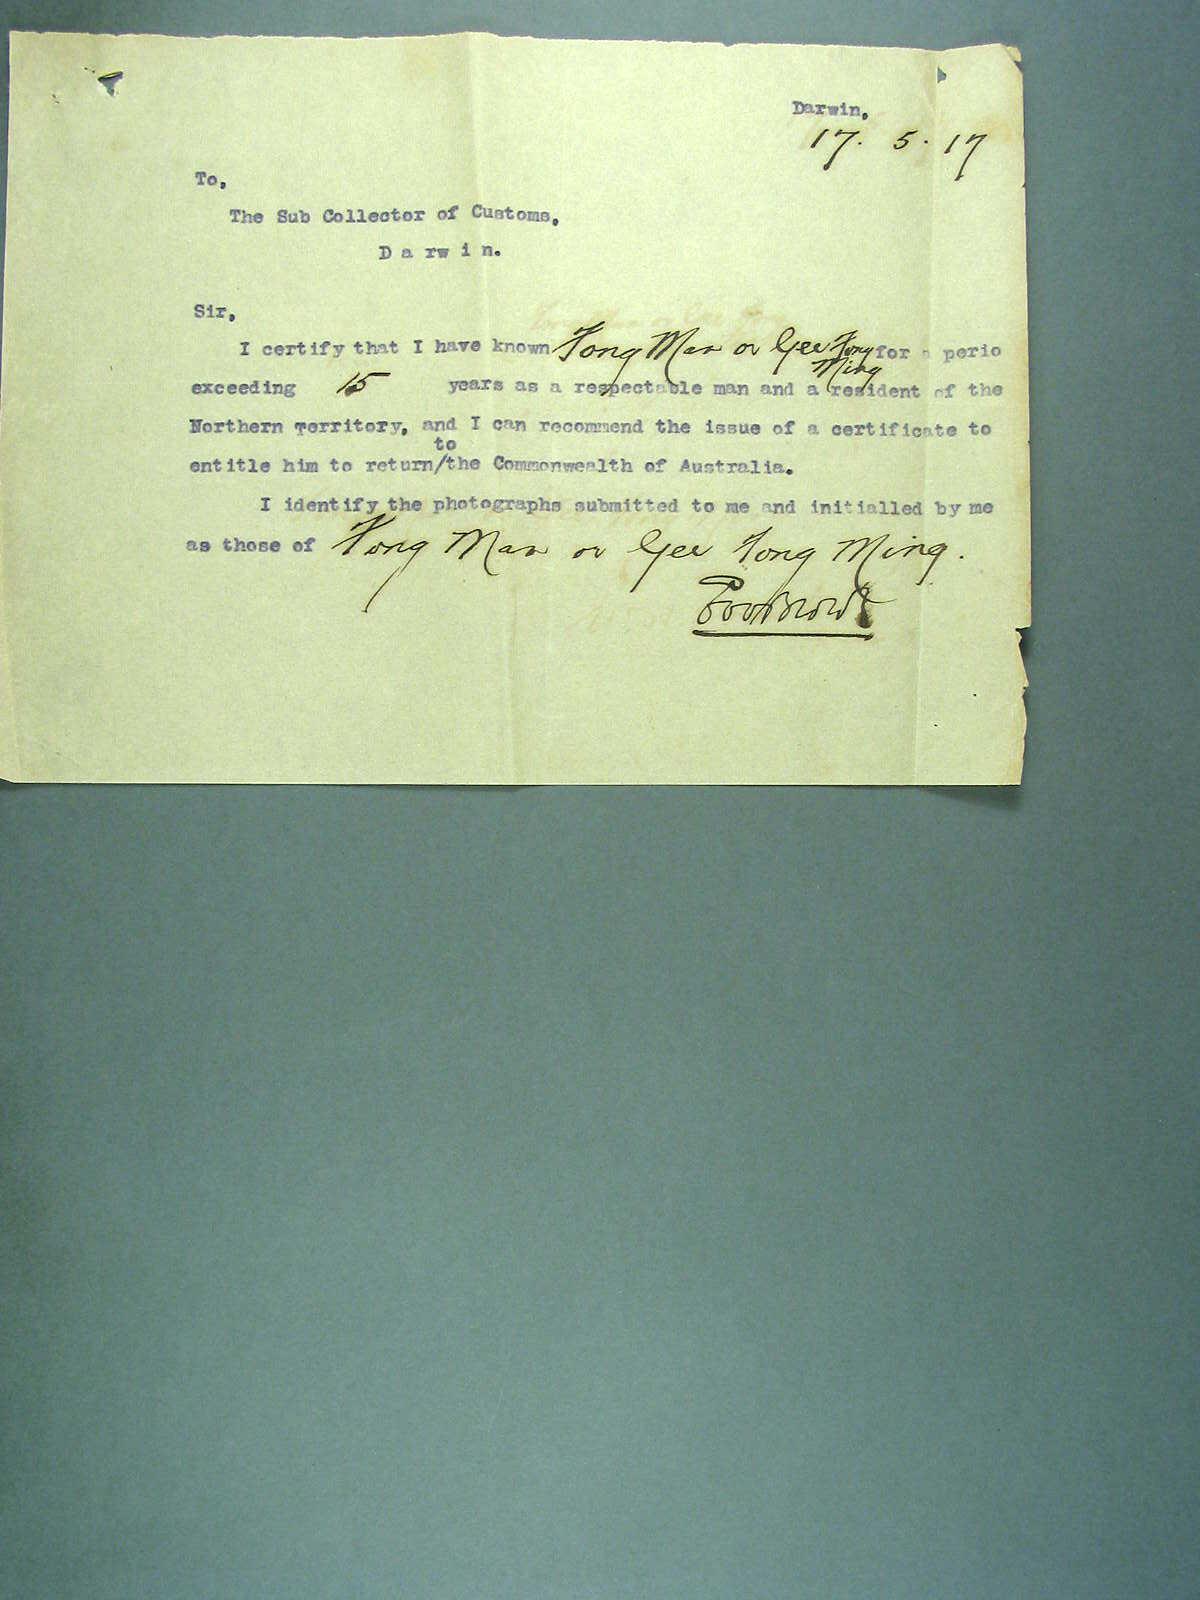 Darwin,
17. 5. 17
To,
The Sub Collector of Customs,
Darwin.
Sir,
I certify that I have known Fong Man or Gee Fong Ming for a perio
exceeding 15 years as a respectable man and a resident of the
Northern Territory, and I can recommend the issue of a certificate to
to
entitle him to return/the Commonwealth of Australia.
I identify the photographs submitted to me and initialled by me
as those of Fong Man or Gee Fong Ming.